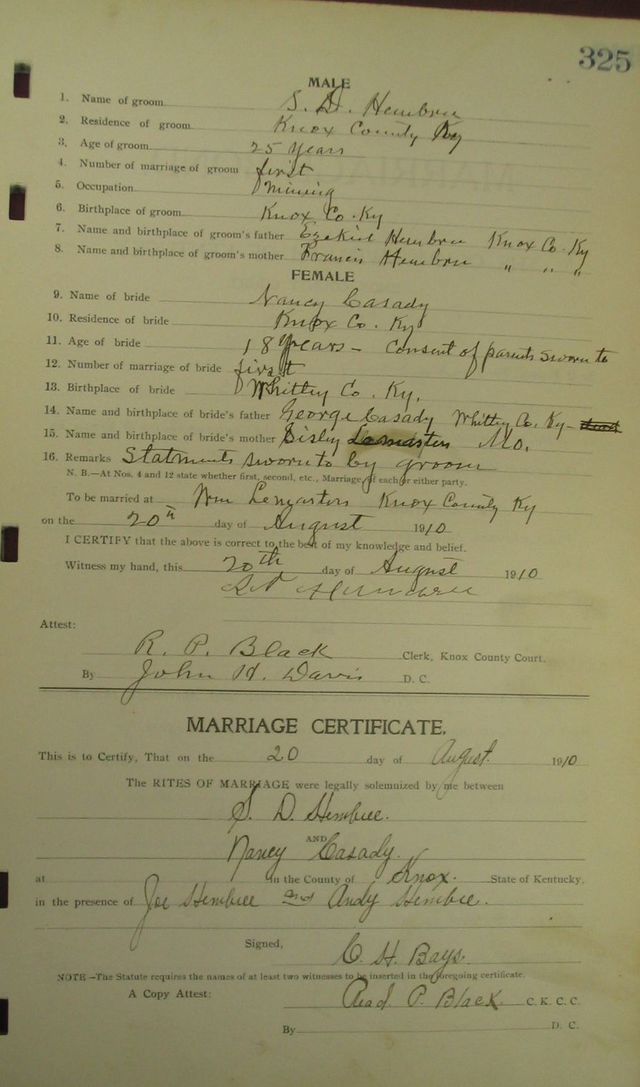 325
MALE
1. Name of groom S. D. Hembree
2. Residence of groom Knox County Ky
3. Age of groom 25 years
4. Number of marriage of groom first
5. Occupation Mining
6. Birthplace of groom Knox Co. Ky
7. Name and birthplace of groom's father Ezekiel Hembree Knox Co. Ky
8. Name and birthplace of groom's mother Francis Hembree " " "
FEMALE
9. Name of bride Nancy Casady
10. Residence of bride Knox Co. Ky
11. Age of bride 18 years - Consent of parents sworn to
12. Number of marriage of bride first
13. Birthplace of bride Whitley Co. Ky.
14. Name and birthplace of bride's father George Casady Whitley Co. Ky -
15. Name and birthplace of bride's mother Sisley Lemasters Mo.
16. Remarks Statments sworn to by groom
N. B.—At Nos. 4 and 12 state whether first, second, etc., Marriage, of each or either party.
To be married at Wm Lemasters Knox County Ky
on the 20th day of August 1910
I CERTIFY that the above is correct to the best of my knowledge and belief.
Witness my hand, this 20th day of August 1910
S D Hembree
Attest:
R. P. Black Clerk, Knox County Court.
By John H. Davis D. C.
MARRIAGE CERTIFICATE.
This is to Certify, That on the 20 day of August 1910
The RITES OF MARRIAGE were legally solemnized by me between
S. D. Hembree.
AND
Nancy Casady.
at in the County of Knox. State of Kentucky,
in the presence of Joe Hembree and Andy Hembree.
Signed, C. H. Bays.
NOTE—The Statute requires the names of at least two witnesses to be inserted in the foregoing certificate.
A Copy Attest: Read P. Black C. K. C. C.
By D. C.